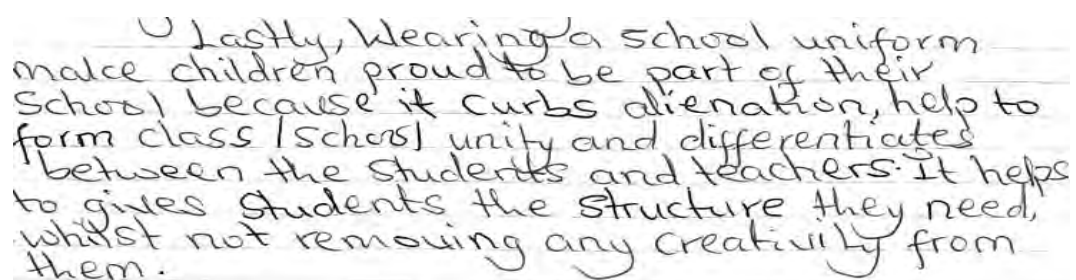 Lastly, Wearing a school uniform
make children proud to be part of their
School because it curbs alienation, help to
form class / school unity and differentiates
between the students and teachers. It helps
to gives students the structure they need,
whilst not removing any creativity from
them.